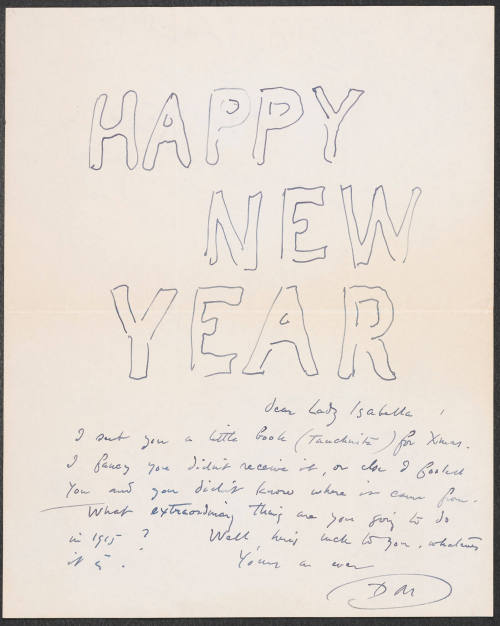 HAPPY
NEW
YEAR
Dear Lady Isabella !
I sent you a little book (Tauchnitz) for Xmas.
I fancy you didn't receive it, or else I fooled
you and you didn't know where it came from.
What extraordinary thing are you going to do
in 1915? Well here's luck to you, whatever
it is.
Yours as ever